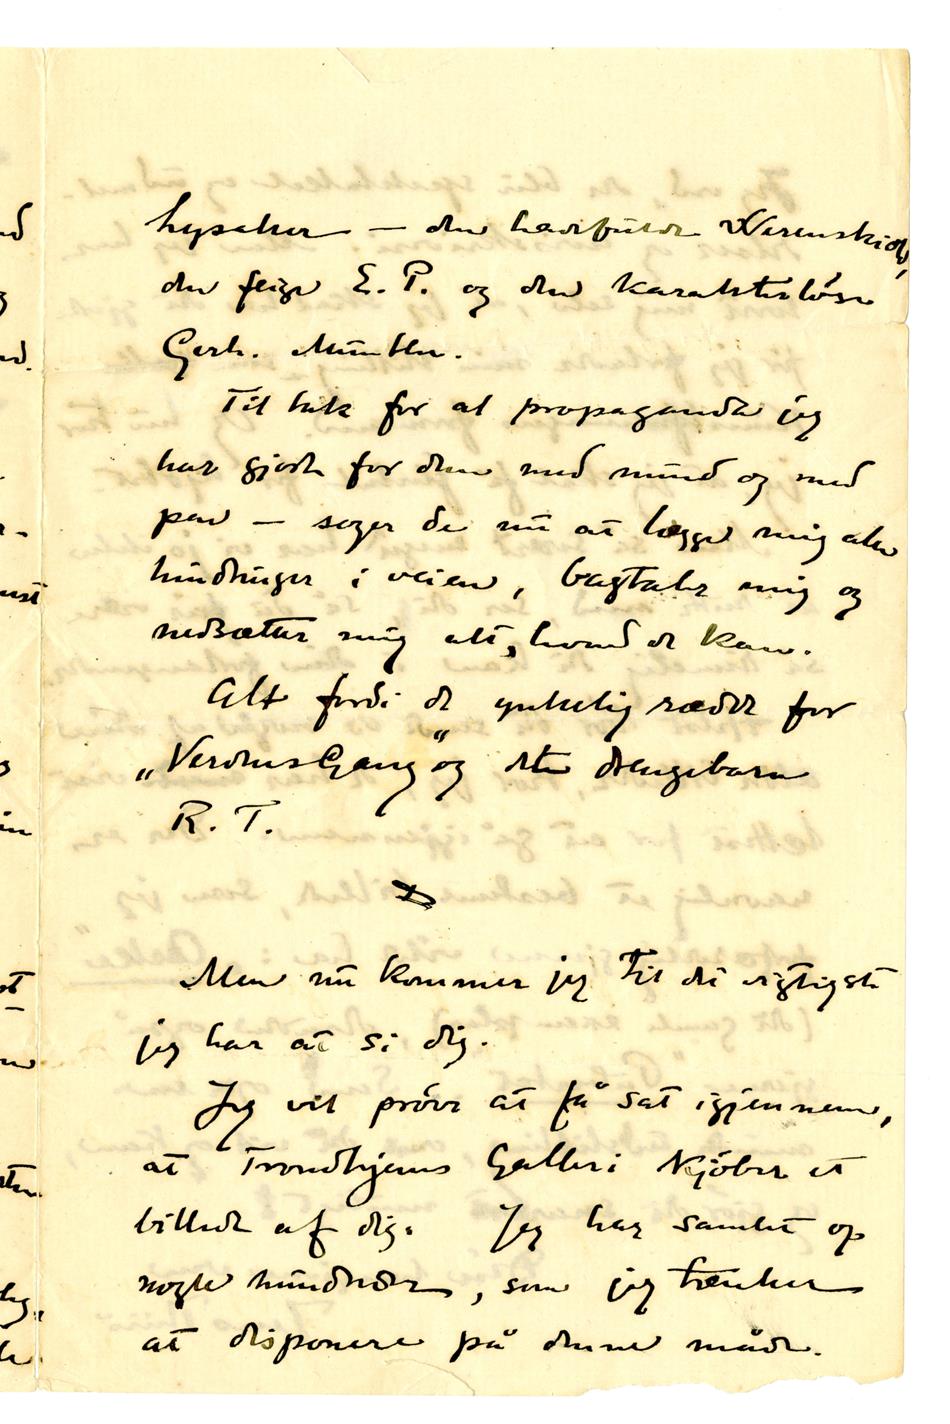 Lysaker — den hadefulde Werenskiold,
den feige E. P. og den karakterløse
Gerh. Munthe.
Til tak for al propaganda jeg
har gjort for dem med mund og med
pen — søger de nu at lægge mig alle
hindringer i veien, bagtaler mig og
nedsætter mig alt, hvad de kan.
Alt fordi de ynkelig rædde for
„Verdens Gang“ og dette drengebarn
R. T.
Men nu kommer jeg til det vigtigste
jeg har at si dig.
Jeg vil prøve at få sat igjennem,
at Trondhjems Galleri kjøber et
billede af dig. Jeg har samlet op
nogle hundreder, som jeg tænker
at disponere på denne måde.